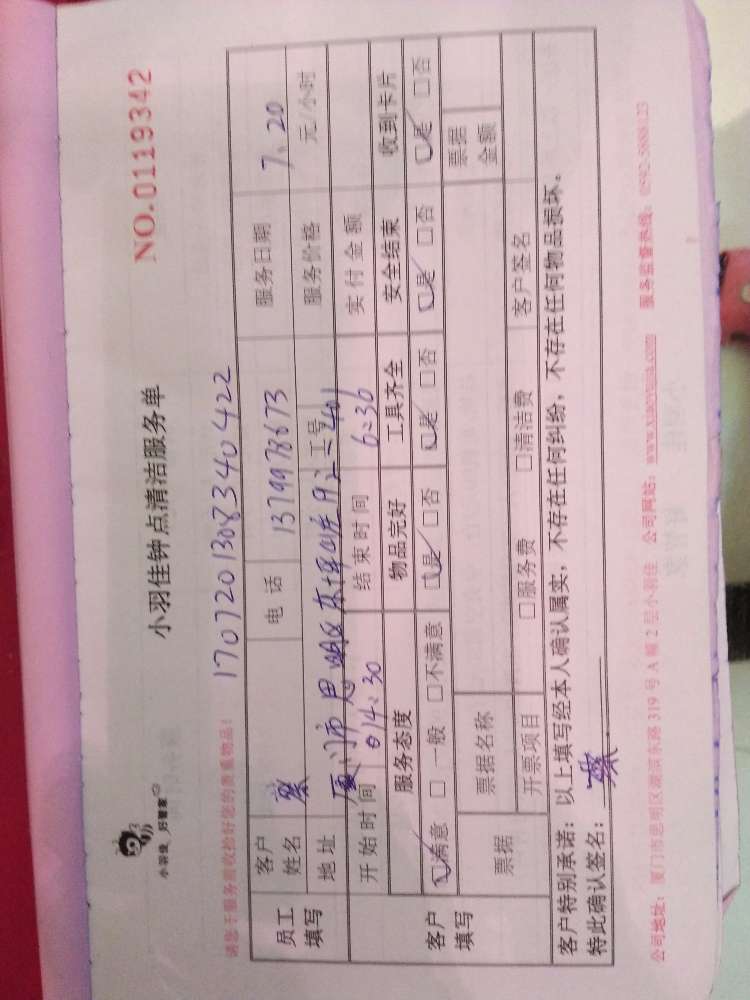 小羽佳 好管家
小羽佳钟点清洁服务单
NO.0119342
请您于服务前收捡好您的贵重物品！
170720130834 0422
员工填写
客户姓名 蔡 电话 13799978673 服务日期 7.20
地址 厦门市思明区 工号 服务价格 元/小时
开始时间 14:30 结束时间 6:30 实付金额
客户填写
服务态度 物品完好 工具齐全 安全结束 收到卡片
□满意 □一般 □不满意 □是 □否 □是 □否 □是 □否 □是 □否
票据 票据名称 票据金额
开票项目 □服务费 □清洁费 客户签名
客户特别承诺：以上填写经本人确认属实，不存在任何纠纷，不存在任何物品损坏。
特此确认签名：蔡
公司地址：厦门市思明区湖滨东路 319 号 A 幢 2 层小羽佳 公司网站：www.xiaoyujia.com 服务监督热线：0592-5888123